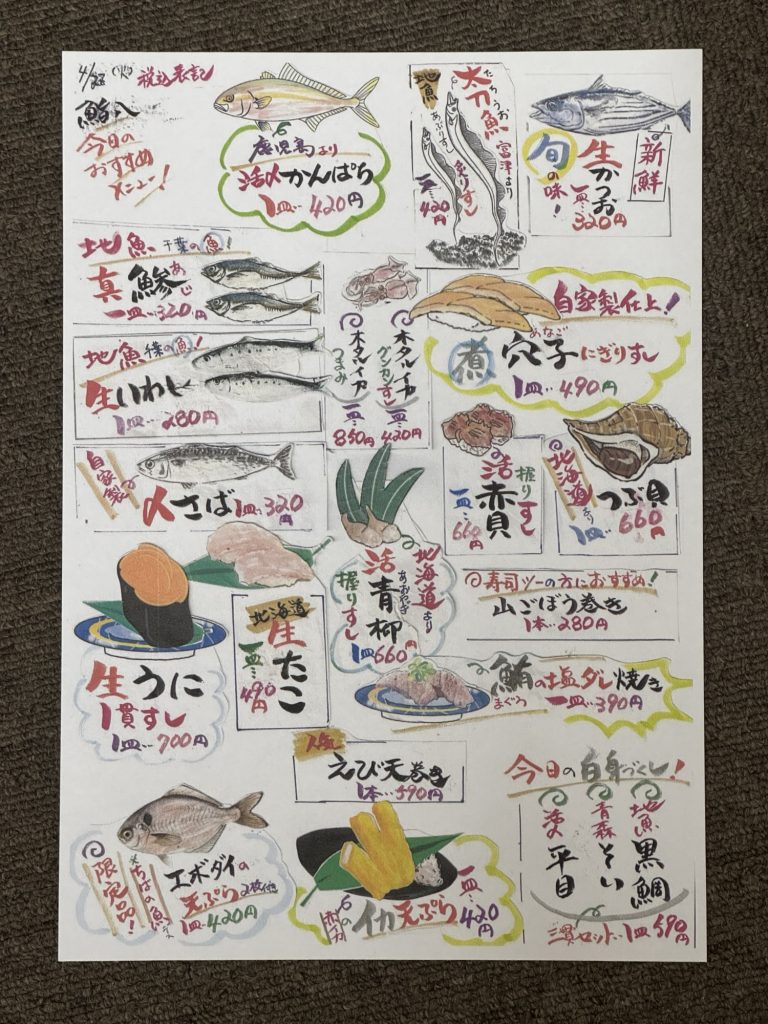 4/23 税込表記
鮨八
今日の
おすすめ
メニュー!
鹿児島より
活〆かんぱち
1皿‥420円
地魚
太刀魚
たちうお
富津より
あぶりすし
炙りすし
一皿‥420円
新鮮
生かつお
旬の味!
一皿‥320円
地魚 千葉の魚!
真鯵
あじ
一皿‥320円
地魚 千葉の魚!
生いわし
1皿‥280円
自家製
〆さば 1皿‥320円
ホタルイカ
グンカンすし
一皿‥420円
ホタルイカ
つまみ
一皿‥850円
自家製仕上!
煮穴子にぎりすし
あなご
1皿‥490円
活赤貝
握りすし
一皿‥660円
北海道より
つぶ貝
1皿‥660円
北海道より
活青柳
あおやぎ
握りすし
1皿660円
寿司ツーの方におすすめ!
山ごぼう巻き
1本‥280円
生うに
1貫すし
1皿‥700円
北海道
生たこ
一皿‥490円
鮪の塩ダレ焼き
まぐろ
一皿‥390円
人気
えび天巻き
1本‥590円
限定品!
ちばの魚
エボダイの
天ぷら 2枚付
1皿‥420円
イカ天ぷら
一皿‥420円
今日の白身づくし!
地魚 黒鯛
青森 そい
活〆 平目
三貫セット‥1皿590円